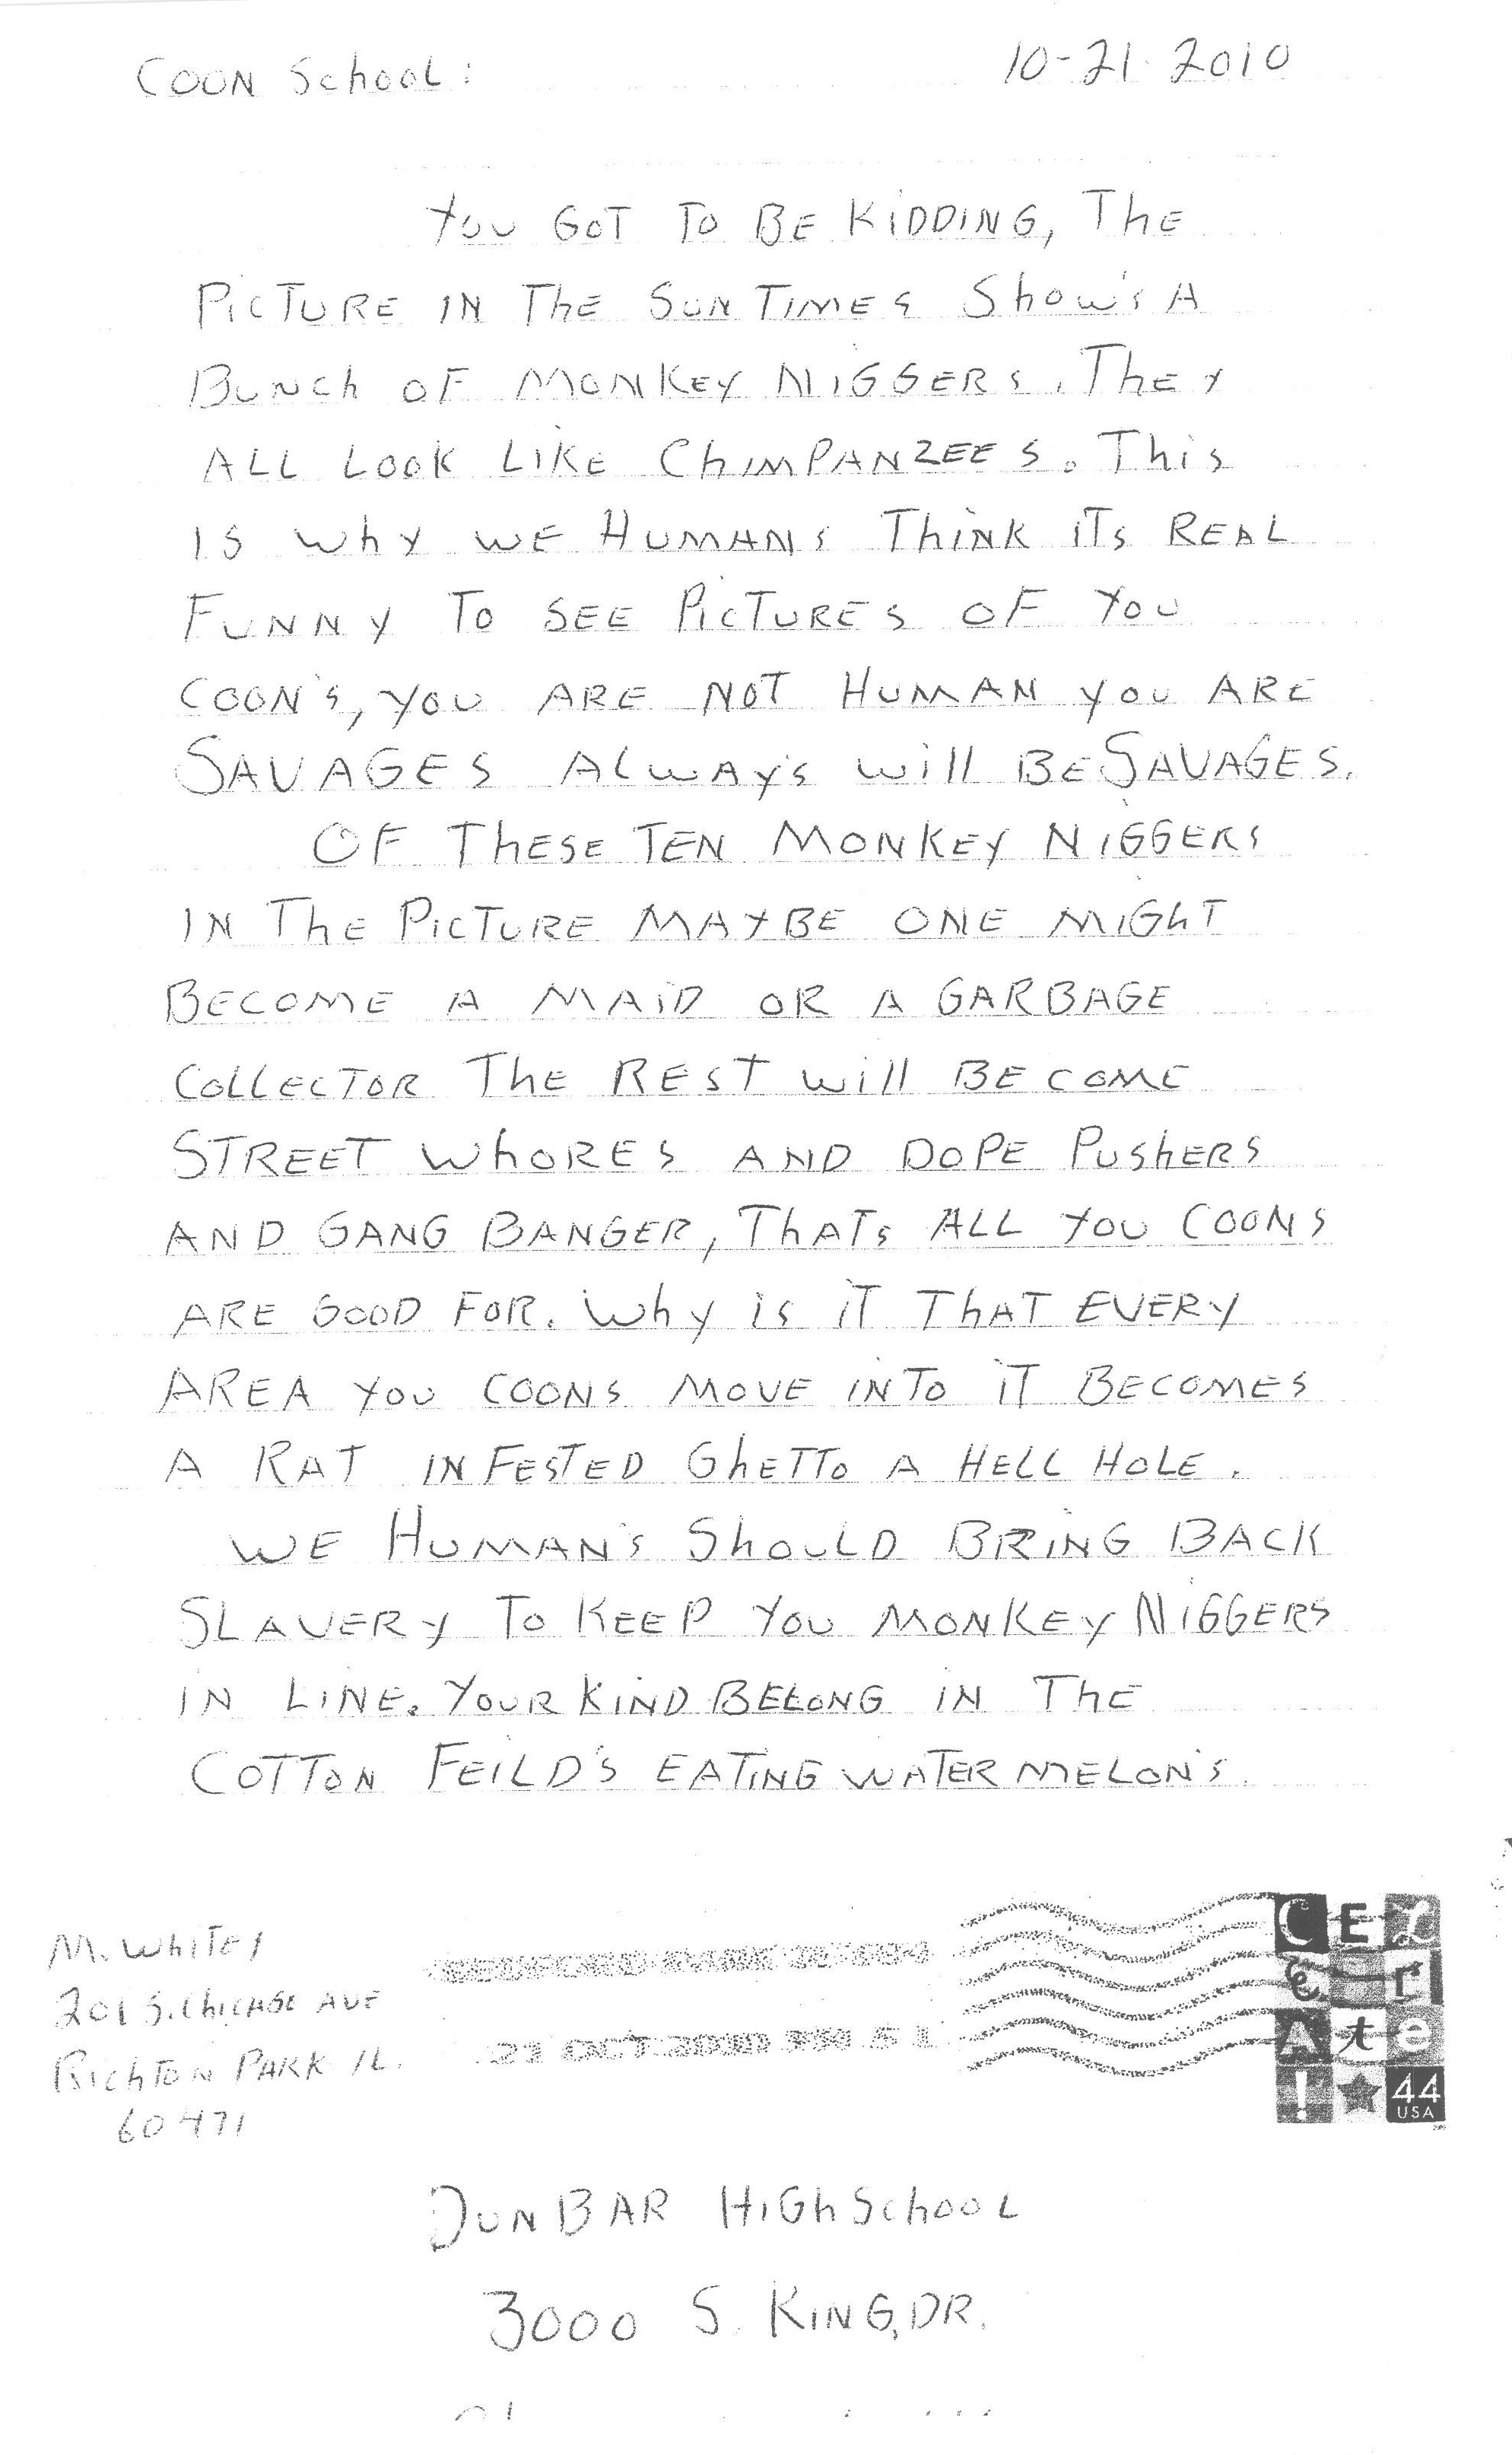 COON SCHOOL: 10-21-2010
YOU GOT TO BE KIDDING, THE
PICTURE IN THE SUN TIMES SHOW'S A
BUNCH OF MONKEY NIGGERS. THEY
ALL LOOK LIKE CHIMPANZEES. THIS
IS WHY WE HUMANS THINK ITS REAL
FUNNY TO SEE PICTURES OF YOU
COON'S, YOU ARE NOT HUMAN YOU ARE
SAVAGES ALWAY'S WILL BE SAVAGES.
OF THESE TEN MONKEY NIGGERS
IN THE PICTURE MAYBE ONE MIGHT
BECOME A MAID OR A GARBAGE
COLLECTOR THE REST WILL BECOME
STREET WHORES AND DOPE PUSHERS
AND GANG BANGER, THATS ALL YOU COONS
ARE GOOD FOR. WHY IS IT THAT EVERY
AREA YOU COONS MOVE INTO IT BECOMES
A RAT INFESTED GHETTO A HELL HOLE.
WE HUMAN'S SHOULD BRING BACK
SLAVERY TO KEEP YOU MONKEY NIGGERS
IN LINE. YOUR KIND BELONG IN THE
COTTON FEILD'S EATING WATERMELON'S.
M. WHITEY
201 S. CHICAGO AVE
RICHTON PARK IL.
60471
21 OCT 2010 PM 5 L
CELEbrAte!
44
USA
DUNBAR HIGH SCHOOL
3000 S. KING, DR.